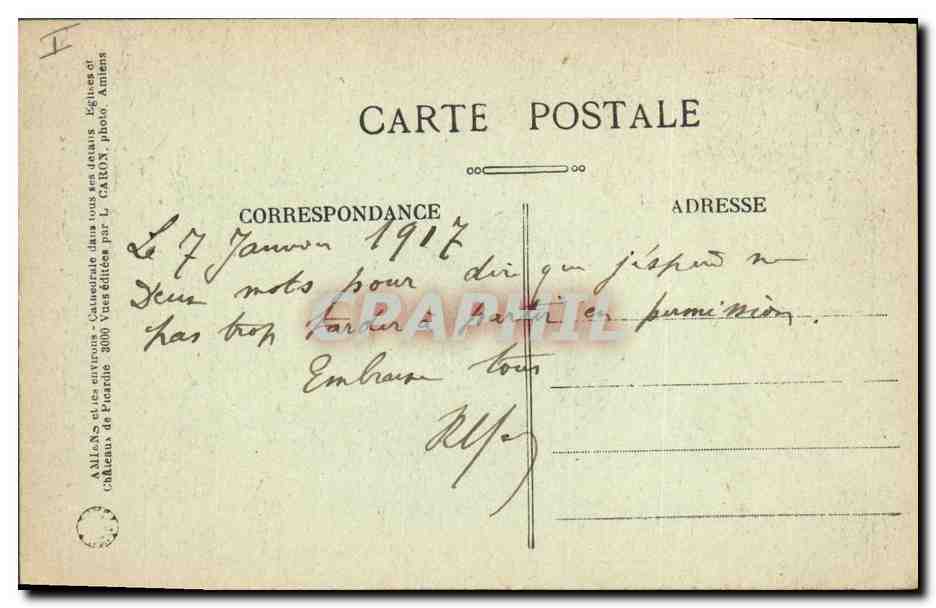 I
AMIENS et les environs - Cathédrale dans tous ses détails Eglises et
Châteaux de Picardie 3000 Vues éditées par L CARON, photo, Amiens
CARTE POSTALE
CORRESPONDANCE
ADRESSE
Le 7 Janvier 1917
Deux mots pour dire que j'éspère ne
pas trop tarder à partir en permission.
Embrasse tous
GRAPHIL